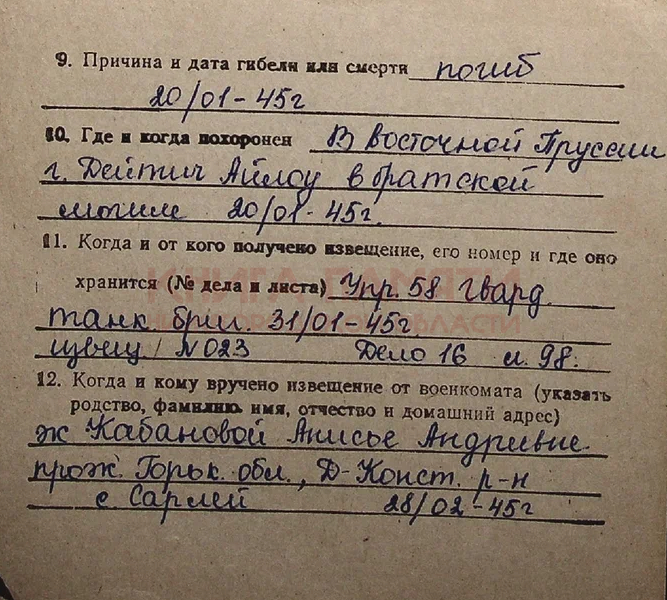 9. Причина и дата гибели или смерти погиб
20/01-45г
10. Где и когда похоронен В Восточной Пруссии
г. Дейтич Айлоу в братской
могиле 20/01-45г.
11. Когда и от кого получено извещение, его номер и где оно
хранится (№ дела и листа) Упр. 58 Гвард.
танк. бриг. 31/01-45г.
извещ / N 023 Дело 16 л. 98.
12. Когда и кому вручено извещение от военкомата (указать
родство, фамилию, имя, отчество и домашний адрес)
ж Кабановой Анисье Андривне
прож. Горьк. обл., Д-Конст. р-н
с. Сарлей 28/02-45г
КНИГА ПАМЯТИ
ОБЛАСТИ